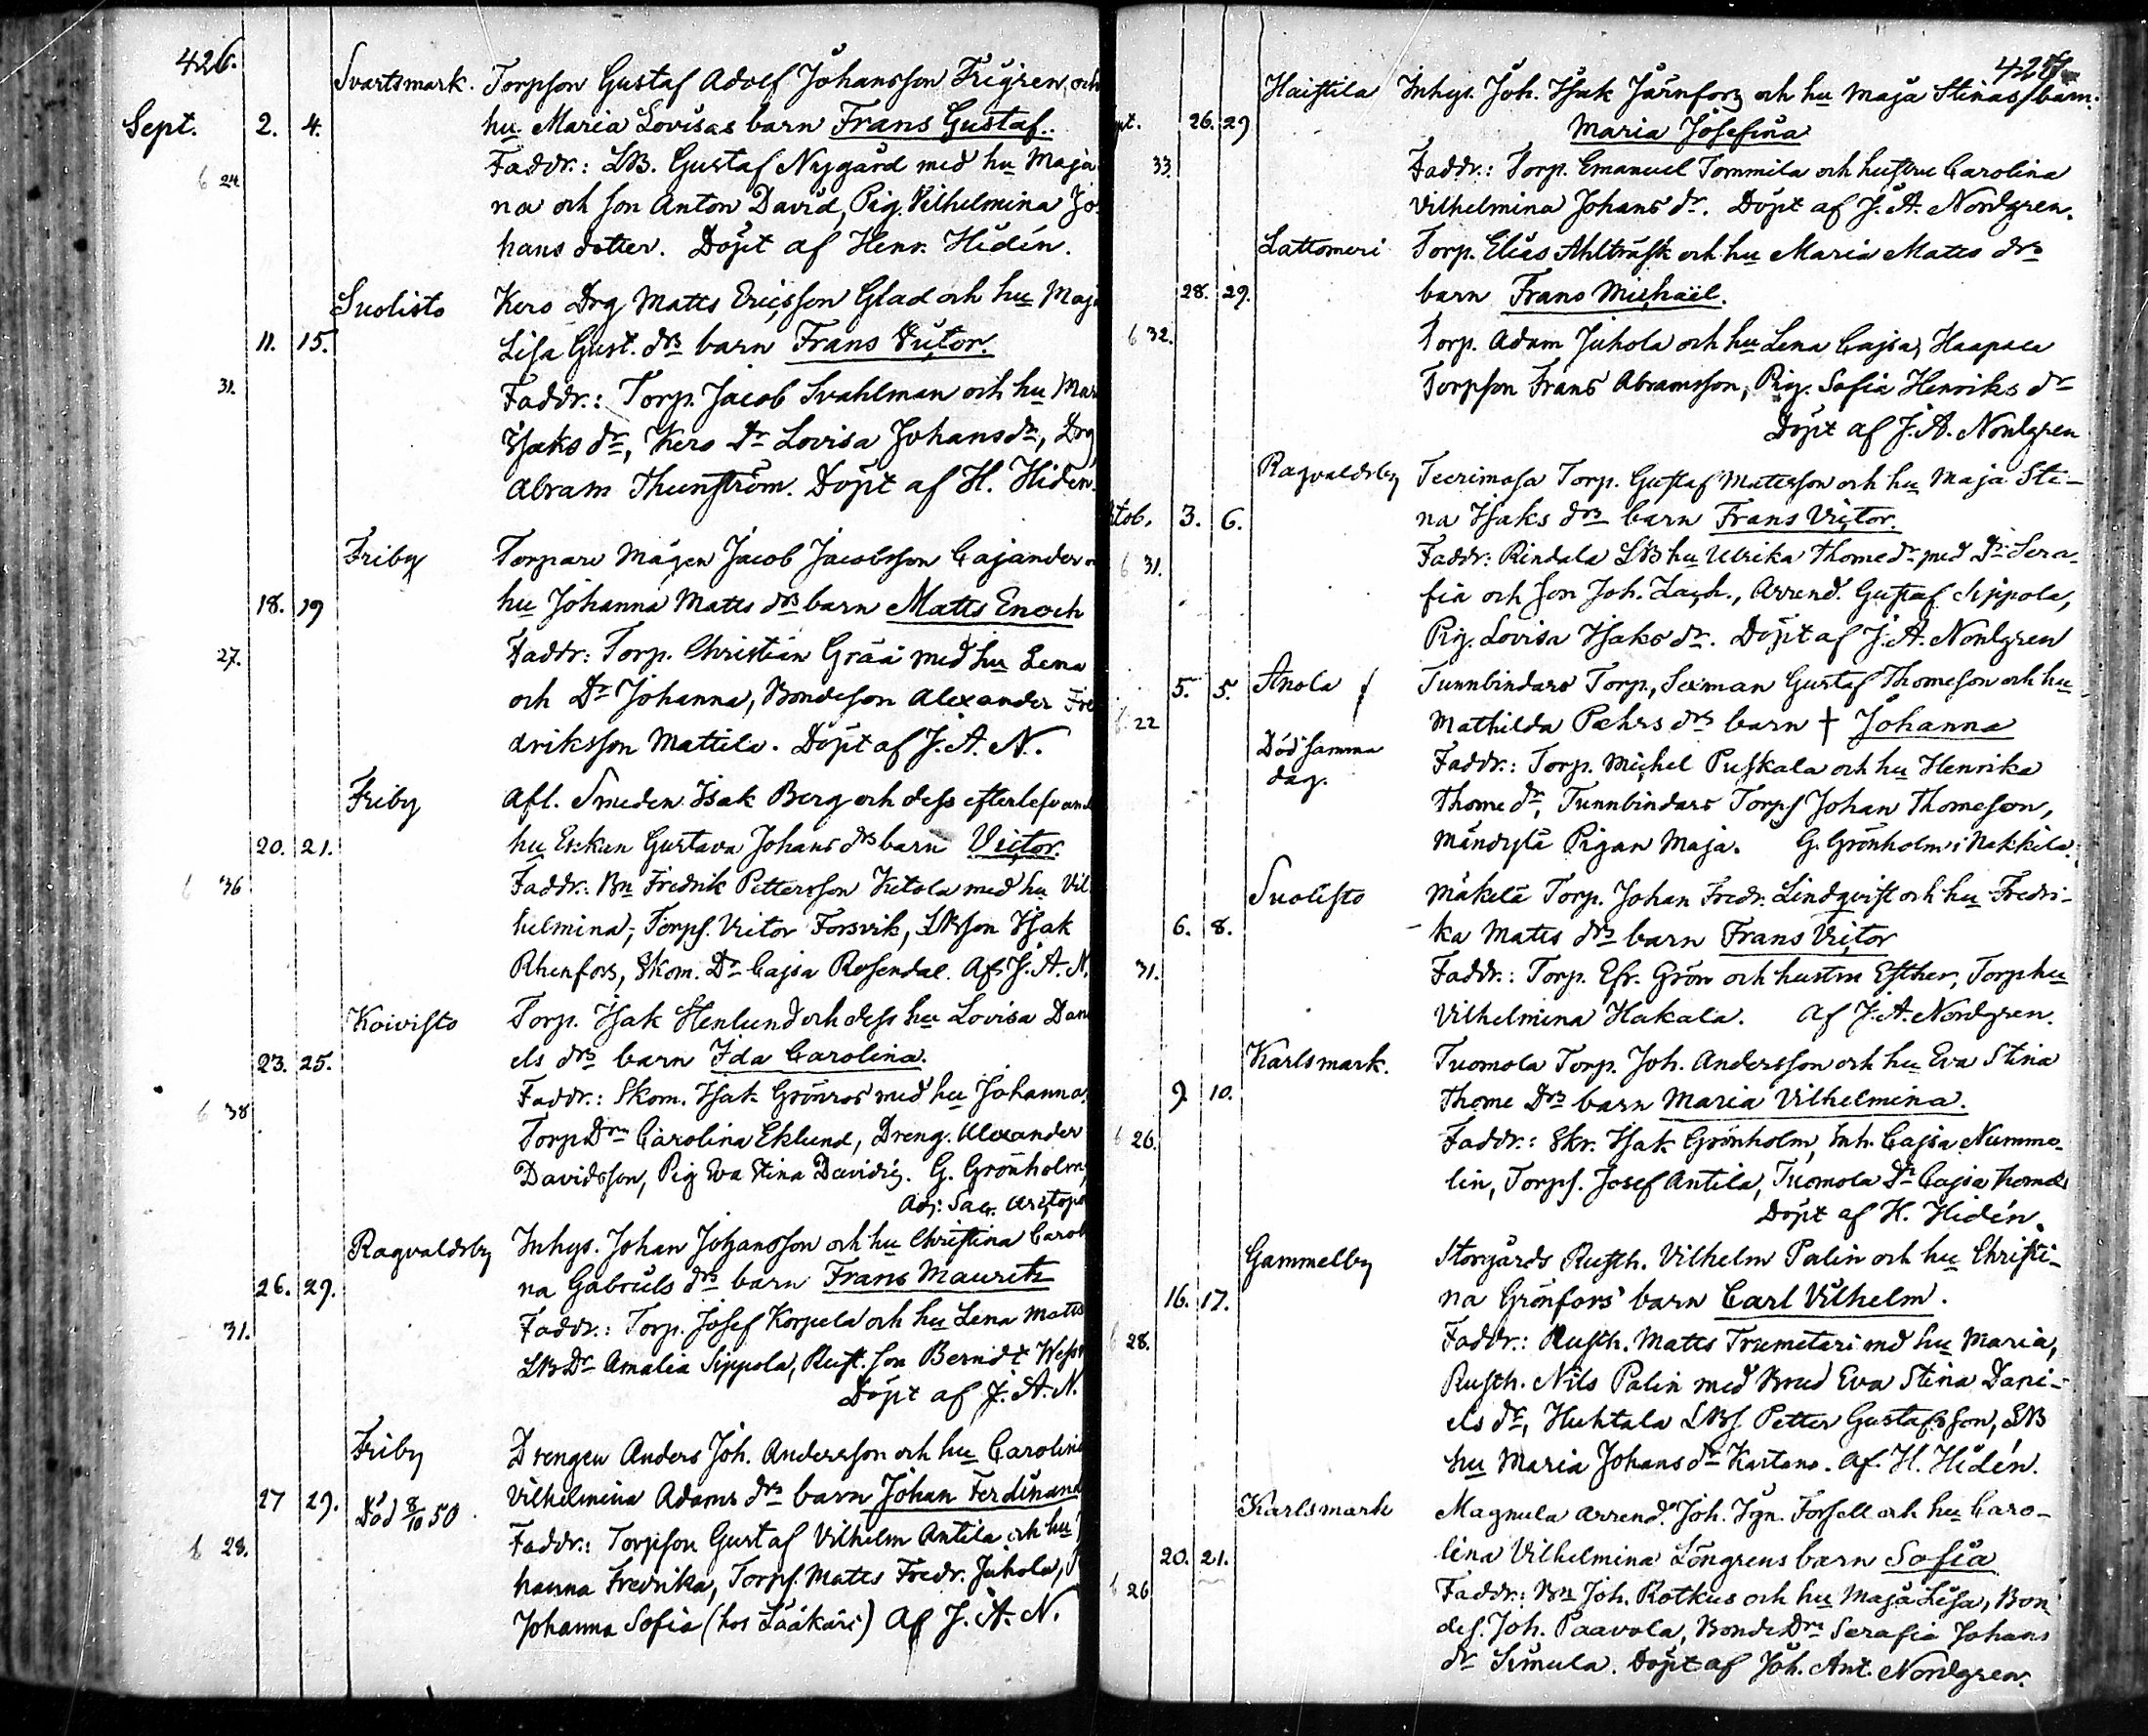 426.
Svartsmark. Torpson Gustaf Adolf Johansson Frigren och
Sept. 2. 4. hu. Maria Lovisas barn Frans Gustaf.
6 24 Faddr.: LB. Gustaf Nygård med hu Maja
na och son Anton David, Pig. Vilhelmina Jo-
hans dotter. Döpt af Henr. Hidén.
Suolisto Kero Drg Matts Ericsson Glad och hu Maja
11. 15. Lisa Gust. drs barn Frans Victor.
31. Faddr.: Torp. Jacob Svahlman och hu Mar
Isaks dr, Kero Dr Lovisa Johansdr, Drg
Abram Thunström. Döpt af H. Hiden.
Friby Torpare Mågen Jacob Jacobsson Cajander
18. 19 hu Johanna Matts drs barn Matts Enoch
27. Faddr: Torp. Christian Grää med hu Lena
och Dr Johanna, Bondeson Alexander Fre
driksson Mattila. Döpt af J. A. N.
Friby Afl. Smeden Isak Berg och dess efterlefvand
20. 21. hu Enkan Gustava Johans drs barn Victor.
6 36 Faddr.: Bn Fredrik Pettersson Ketola med hu Vil
helmina, Torps. Victor Forsvik, LBson Isak
Rhenfors, Skom. Dr Cajsa Rosendal. Af J. A. N.
Koivisto Torp. Isak Stenlund och dess hu Lovisa Dani
23. 25. els drs barn Ida Carolina.
6 38 Faddr.: Skom. Isak Grönros med hu Johanna,
Torp Drn Carolina Eklund, Dreng. Alexander
Davidsson, Pig Eva Stina Davidsdr. G. Grönholm,
Adj: Sacr.
Ragvaldsby Inhys. Johan Johansson och hu Christina Caroli
26. 29. na Gabriels drs barn Frans Mauritz
31. Faddr.: Torp. Josef Korpela och hu Lena Matts
LB Dr Amalia Sippola, Rust. son Berndt
Döpt af J. A. N.
Friby Drengen Anders Joh. Andersson och hu Carolina
27 29. Död 8/10 50. Vilhelmina Adams drs barn Johan Ferdinand
6 28. Faddr.: Torpson Gustaf Vilhelm Antila och hu
hanna Fredrika, Torps. Matts Fredr. Juhola,
Johanna Sofia (hos Lääkäri) Af J. A. N.
427.
Haistila Inhys. Joh. Isak Järnfors och hu Maja Stinas barn.
pt. 26. 29 Maria Josefina
33. Faddr.: Torp. Emanuel Tommila och hustru Carolina
Vilhelmina Johans dr. Döpt af J. A. Nordgren.
Lattomeri Torp. Elias Ahlträsk och hu Maria Matts drs
28. 29. barn Frans Michaël.
6 32. Torp. Adam Juhola och hu Lena Cajsa, Haapala
Torpson Frans Abramsson, Pig. Sofia Henriks dr
Döpt af J. A. Nordgren
Ragvaldsby Teerimasa Torp. Gustaf Mattsson och hu Maja Sti-
ktob. 3. 6. na Isaks drs barn Frans Victor.
6 31. Faddr: Rindala LB hu Ulrika Thome dr med Dr Sera-
fia och son Joh. Zach., Arrend. Gustaf Sippola,
Pig. Lovisa Isaks dr. Döpt af J. A. Nordgren
5. 5. Anola Tunnbindars Torp., Sexman Gustaf Thomeson och hu
6 22 Mathilda Pehrs drs barn † Johanna
Död samma dag. Faddr.: Torp. Michel Puskala och hu Henrika
Thome dr, Tunnbindars Torps Johan Thomeson,
Mändylä Pigan Maja. G. Grönholm i Nakkila.
Suolisto Mäkelä Torp. Johan Fredr. Lindqvist och hu Fredri-
6. 8. ka Matts drs barn Frans Victor
31. Faddr.: Torp. Efr. Grön och hustru Esther, Torp hu
Vilhelmina Hakala. Af J. A. Nordgren.
Karlsmark. Tuomola Torp. Joh. Andersson och hu Eva Stina
9. 10. Thome Drs barn Maria Vilhelmina.
6 26. Faddr.: Skr. Isak Grönholm, Inh. Cajsa Numme-
lin, Torps. Josef Antila, Tuomola Dr Cajsa Thomedr
Döpt af H. Hidén.
Gammelby Storgårds Rusth. Vilhelm Palin och hu Christi-
16. 17. na Grönfors' barn Carl Vilhelm.
6 28. Faddr.: Rusth. Matts Trumetari med hu Maria,
Rusth. Nils Palin med Brud Eva Stina Dani-
els dr, Huhtala LBs. Petter Gustafsson, LB
hu Maria Johans dr Kartano. Af H. Hidén.
Karlsmark Magnula Arrend. Joh. Ign. Forsell och hu Caro-
20. 21. lina Vilhelmina Löngrens barn Sofia
6 26 Faddr.: Bn Joh. Rotkus och hu Maja Lisa, Bon
des. Joh. Paavola, Bonde Drn Serafia Johans
dr Simula. Döpt af Joh. Ant. Nordgren.